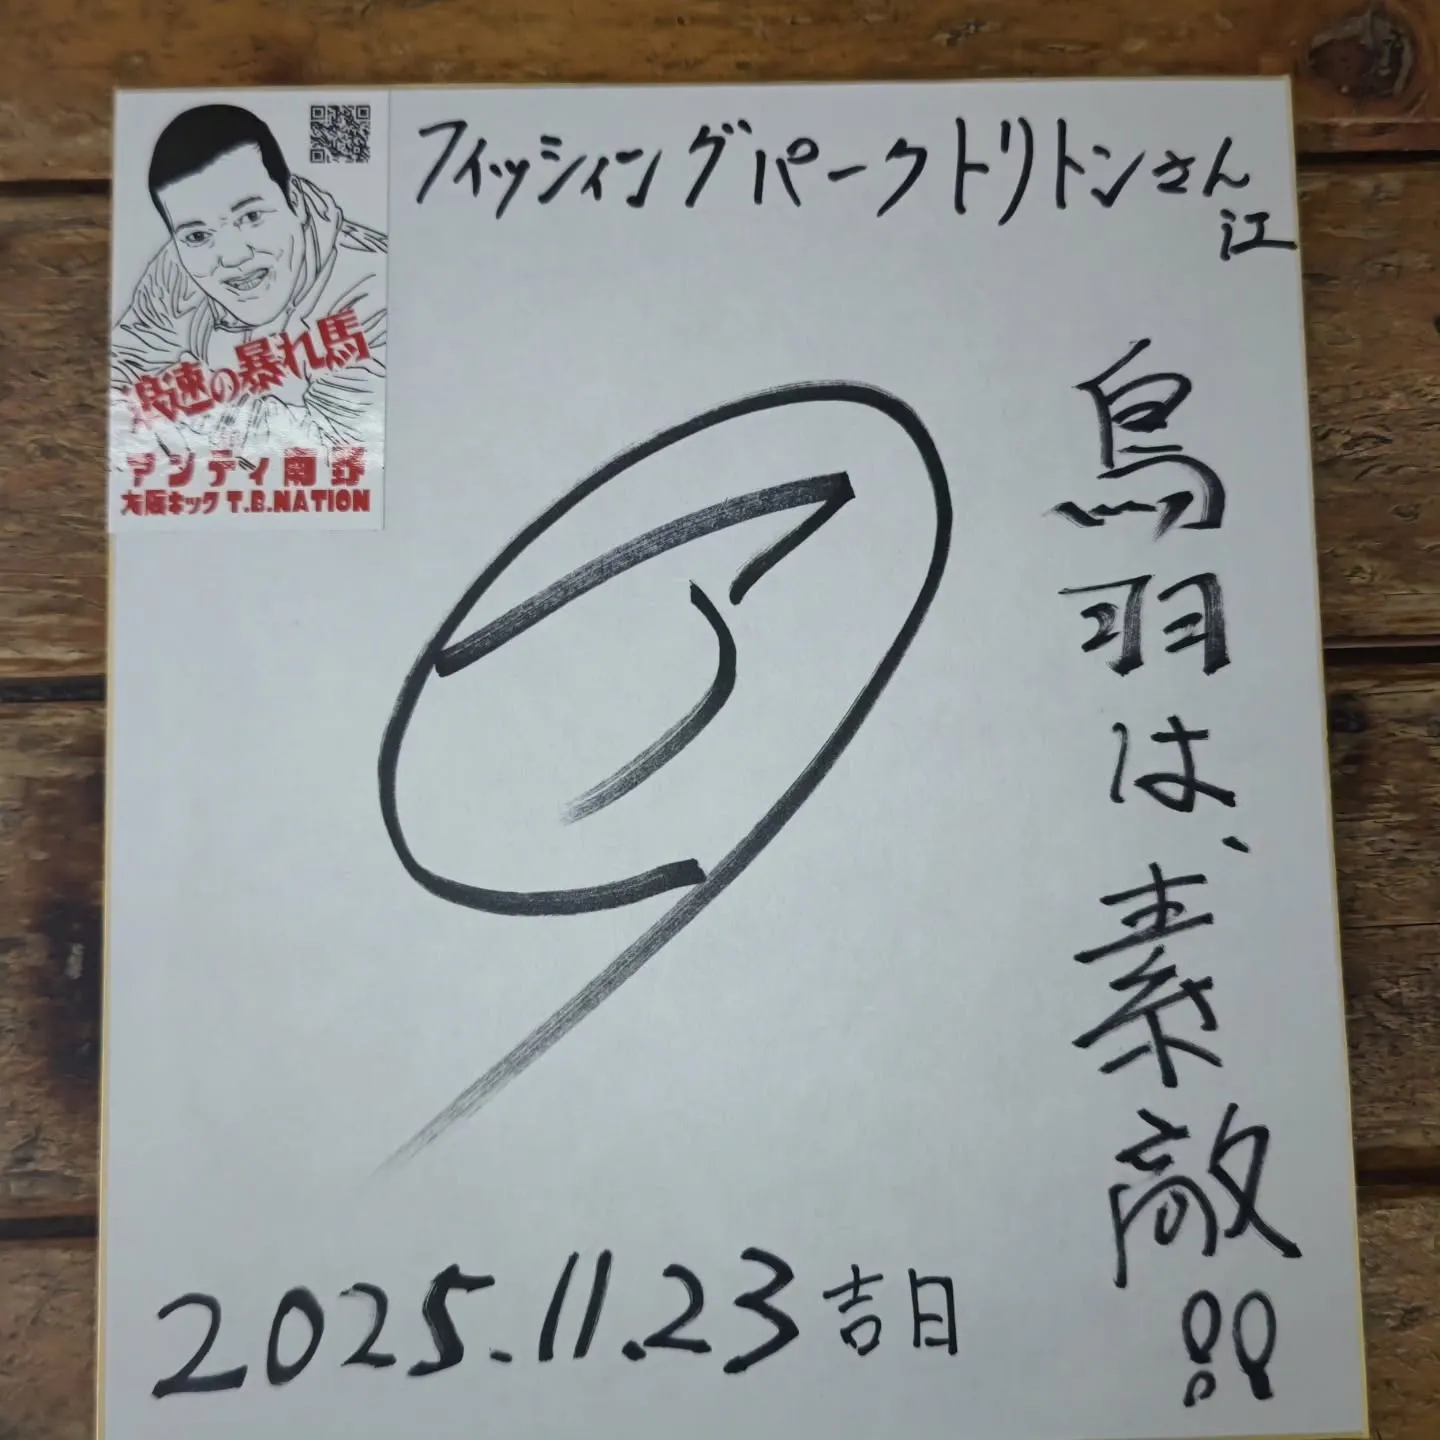 フィッシィングパークトリトンさん
江
鳥羽は、素敵!!
浪速の暴れ馬
アンディ南野
大阪キック T.B.NATION
2025.11.23吉日